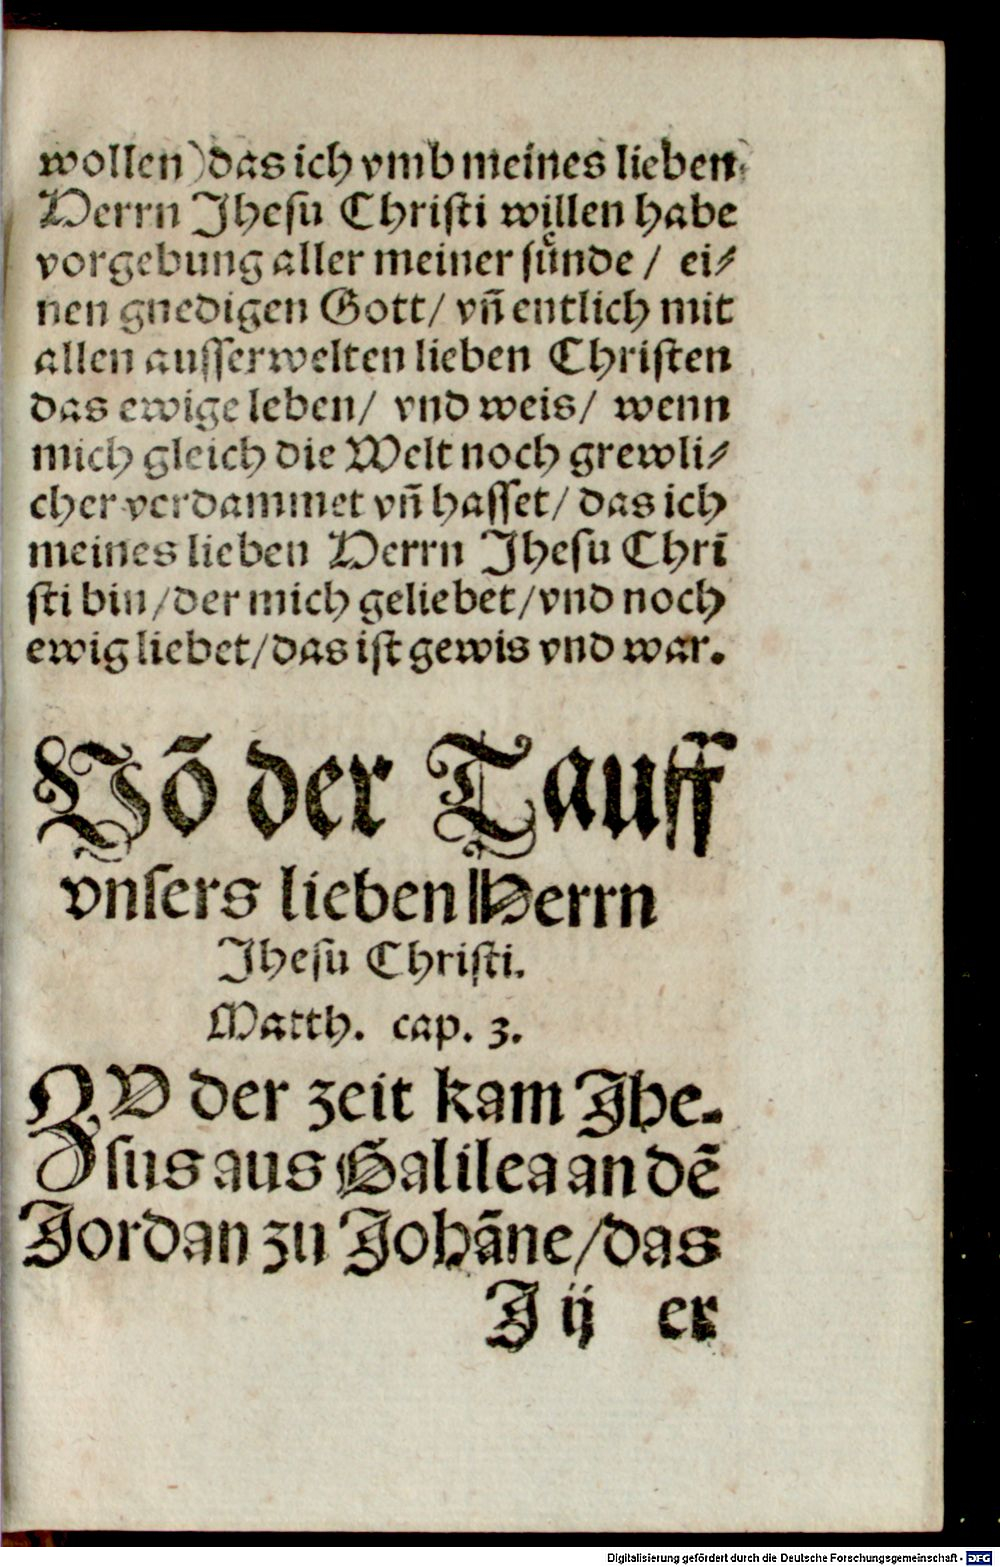 wollen) das ich vmb meines lieben
Herrn Jhesu Christi willen habe
vorgebung aller meiner suͤnde / ei⸗
nen gnedigen Gott / vñ entlich mit
allen ausserwelten lieben Christen
das ewige leben / vnd weis / wenn
mich gleich die Welt noch grewli⸗
cher verdammet vñ hasset / das ich
meines lieben Herrn Jhesu Chri
sti bin / der mich geliebet / vnd noch
ewig liebet / das ist gewis vnd war.
Võ der Tauff
vnsers lieben Herrn
Jhesu Christi.
Matth. cap. 3.
ZV der zeit kam Jhe-
sus aus Galilea an dẽ
Jordan zu Johãne / das
J ij er
Digitalisierung gefördert durch die Deutsche Forschungsgemeinschaft - DFG